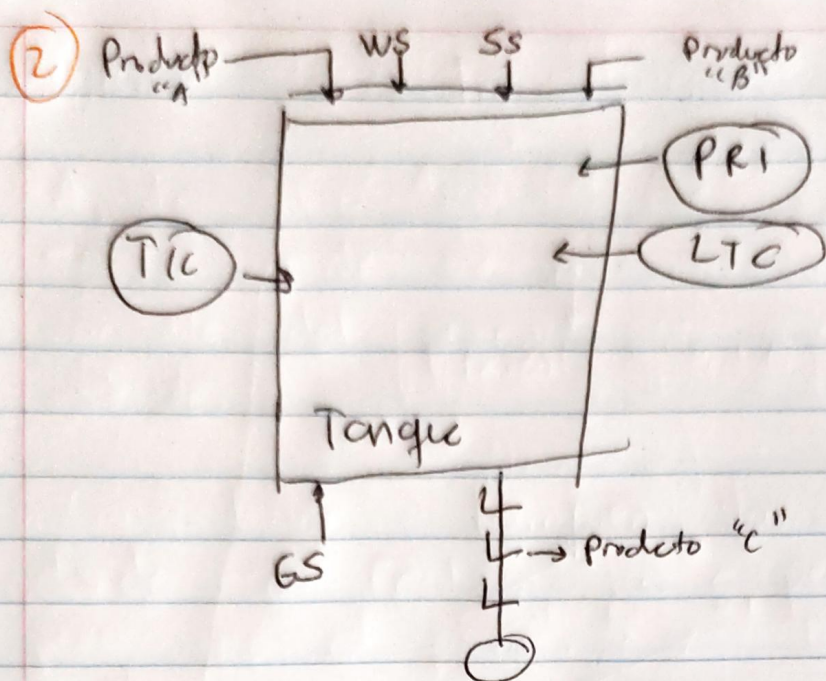 2
Producto
"A
WS
SS
Producto
"B"
PRI
TIC
LTC
Tanque
GS
Producto "C"